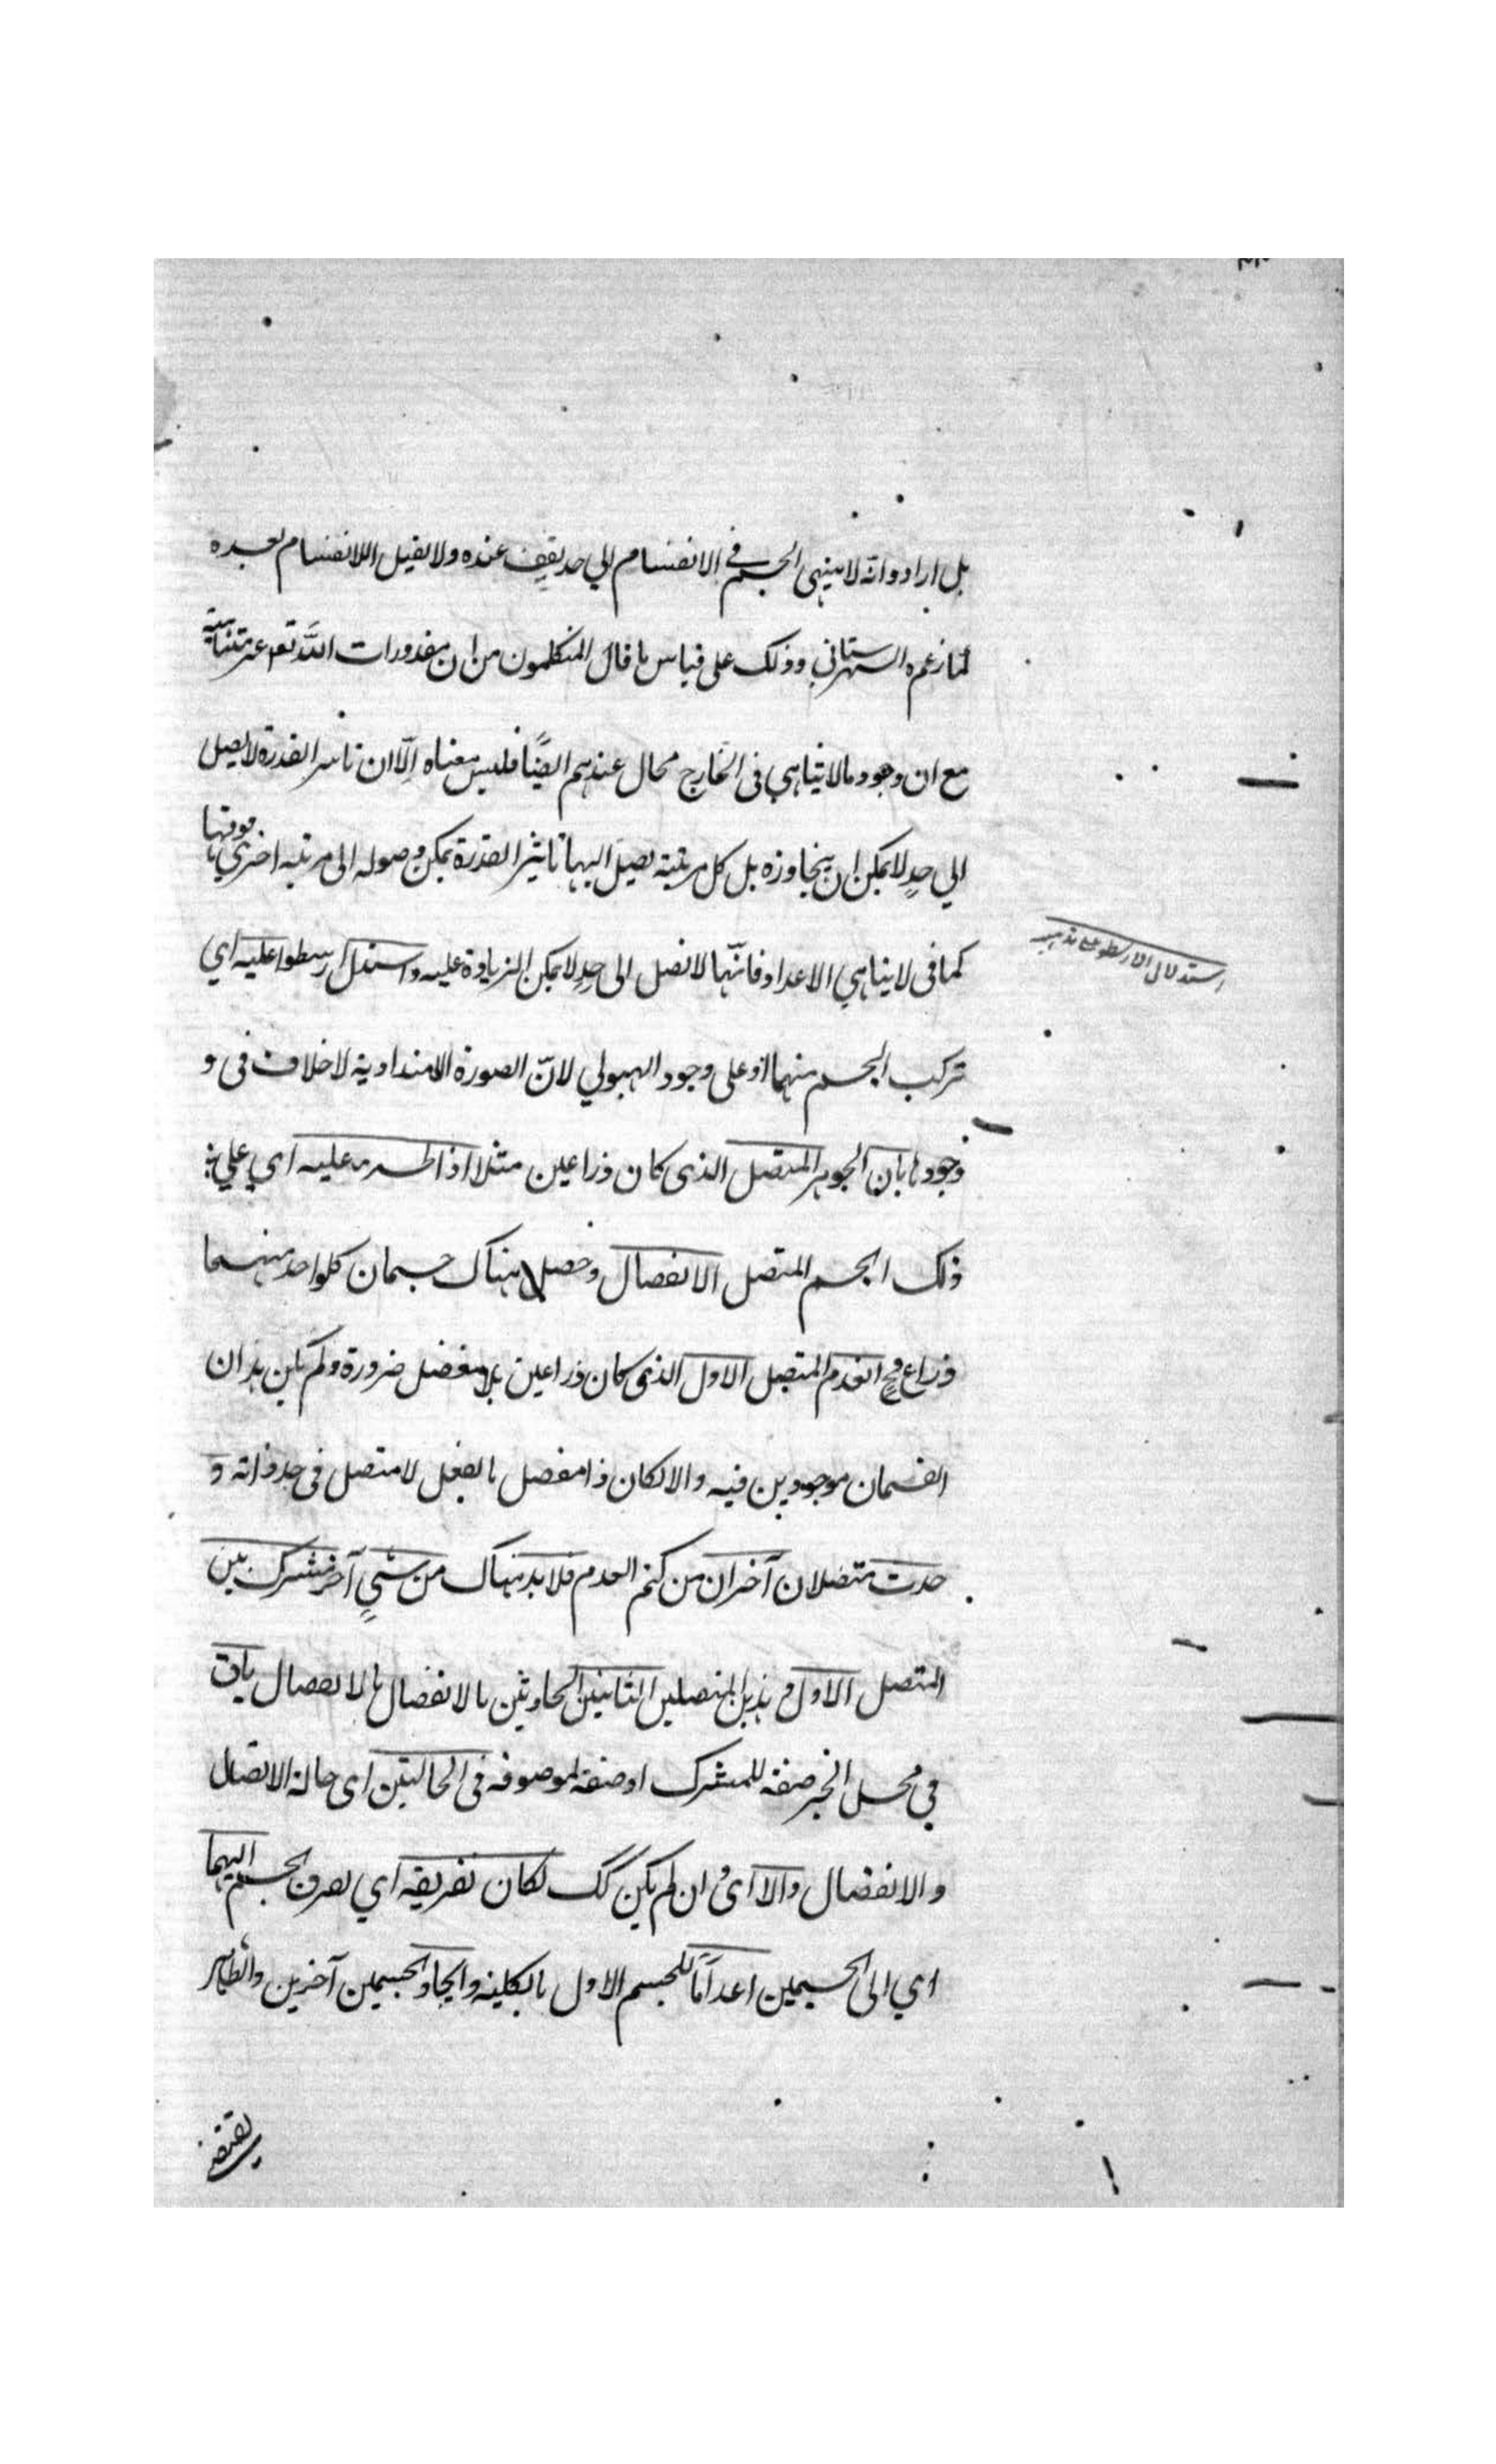 بل ارادوا انه لا ينتهى الجسم في الانقسام الي حد يقف عنده ولا يقبل الانقسام بعده
لما زعمه الشهرستاني وذلك على قياس ما قال المتكلمون من ان مقدورات اللّه تعه غير متناهية
مع ان وجود ما لا يتناهي فى الخارج محال عندهم ايضًا فليس معناه الّا ان تاثير القدرة لا يصل
الي حدٍ لا يمكن ان يتجاوزه بل كل مرتبة يصل اليها تاثير القدرة يمكن وصوله الى مرتبه اخري فوقها
كما فى لا يتناهي الاعداد فانّها لا تصل الى حدٍ لا يمكن الزيادة عليه واستدل ارسطو عليه اي
استدلال ارسطو على مذهبه
تركب الجسم منهما او على وجود الهيولي لانّ الصورة الامتدادية لا خلاف فى و
وجودها بان الجوهر المتصل الذى كان ذراعين مثلا اذا طرء عليه اي علي
ذلك الجسم المتصل الانفصال وحصل هناك جسمان كلواحد منهما
ذراع وح انعدم المتصل الاول الذى كان ذراعين بلا مفصل ضرورة ولم يكن هذان
القسمان موجودين فيه والا لكان ذا مفصل بالفعل لا متصل فى حد ذاته و
حدث متصلان آخران من كتم العدم فلا بد هناك من شيءٍ آخر مشترك بين
المتصل الاول و هذين المتصلين الثانيين الحادثين بالانفصال باق
في محل الجر صفة للمشترك او صفة لموصوفه فى الحالتين اى حالة الاتصال
والانفصال والا اى و ان لم يكن كك لكان تفريقه اي تفريق الجسم اليهما
اي الى الجسمين اعدامًا للجسم الاول بالكلية وايجاد الجسمين آخرين والظاهر
يقتضى